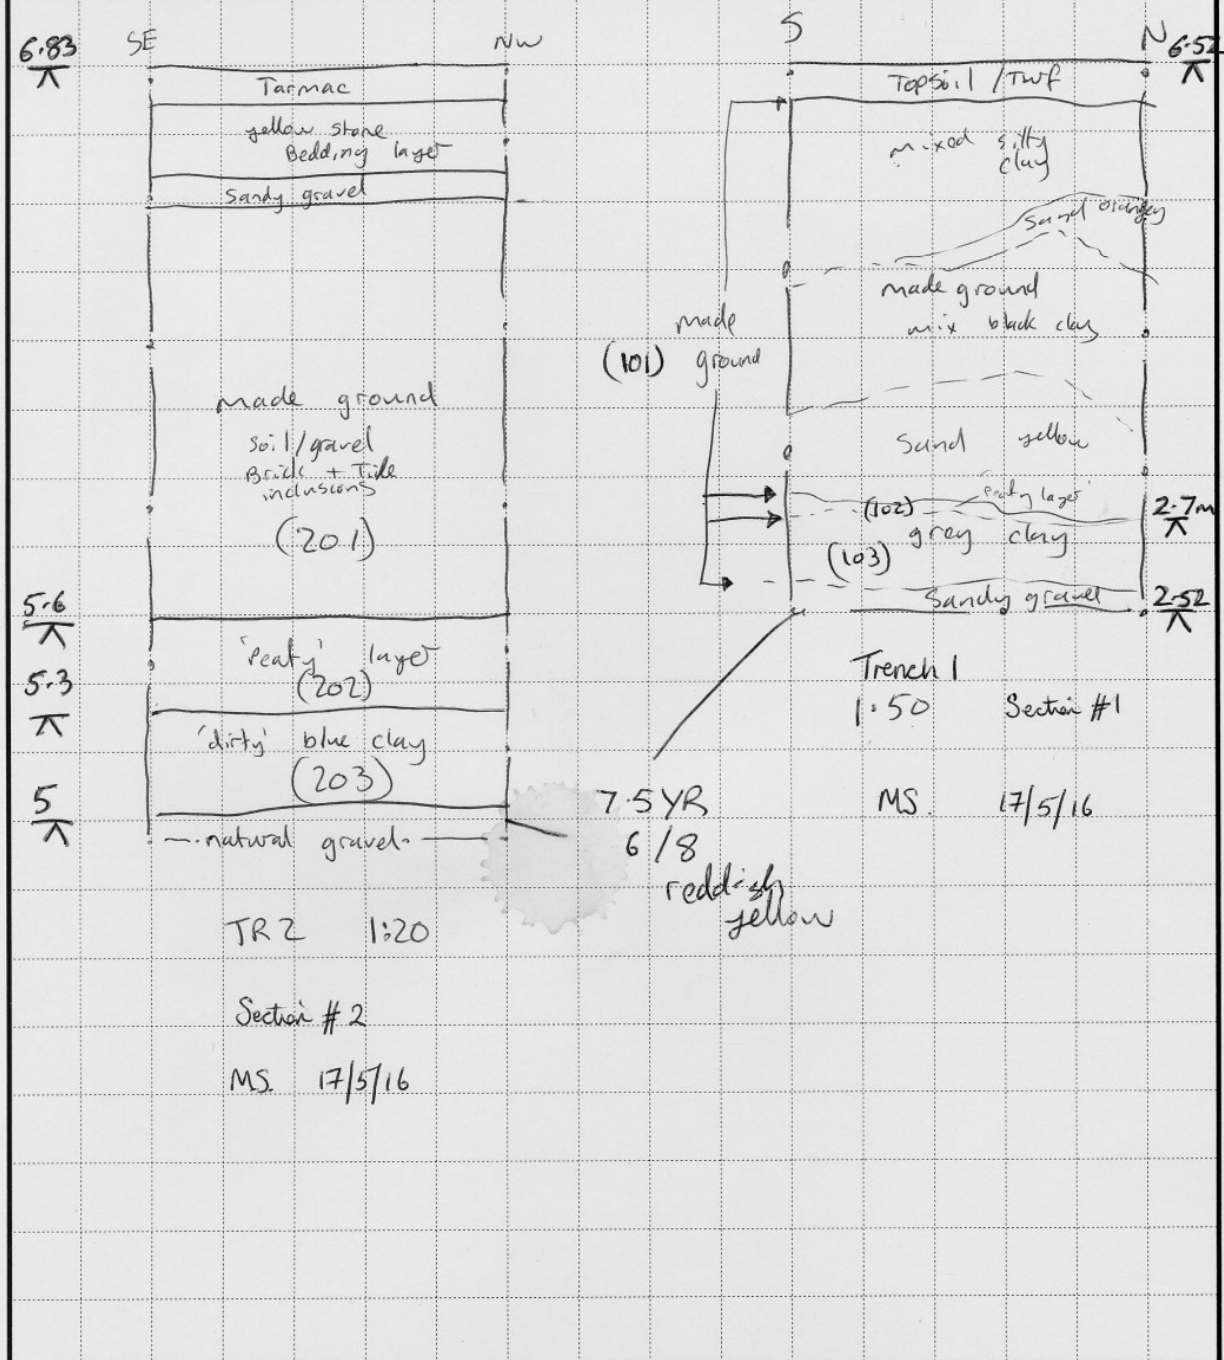 6.83
SE
NW
Tarmac
yellow stone
Bedding layer
Sandy gravel
made ground
soil/gravel
Brick + Tile
inclusions
(201)
5.6
'Peaty' layer
(202)
5.3
'dirty' blue clay
(203)
5
natural gravel
TR2 1:20
Section #2
MS. 17/5/16
S
N
6.52
Topsoil / Turf
mixed silty
clay
Sand orangey
made ground
mix black clay
made
(101) ground
Sand yellow
'Peaty layer'
(102)
2.7m
grey clay
(103)
Sandy gravel
2.52
Trench 1
1:50 Section #1
MS. 17/5/16
7.5YR
6/8
reddish
yellow